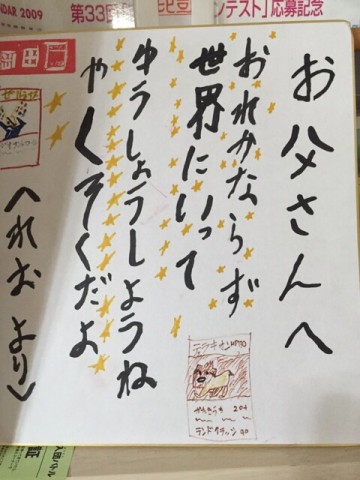 DAR 2009
第33回
ンテスト」応募記念
お父さんへ
おれかならず
世界にいって
ゆうしょうしようね
やくそくだよ
（れおより）
証